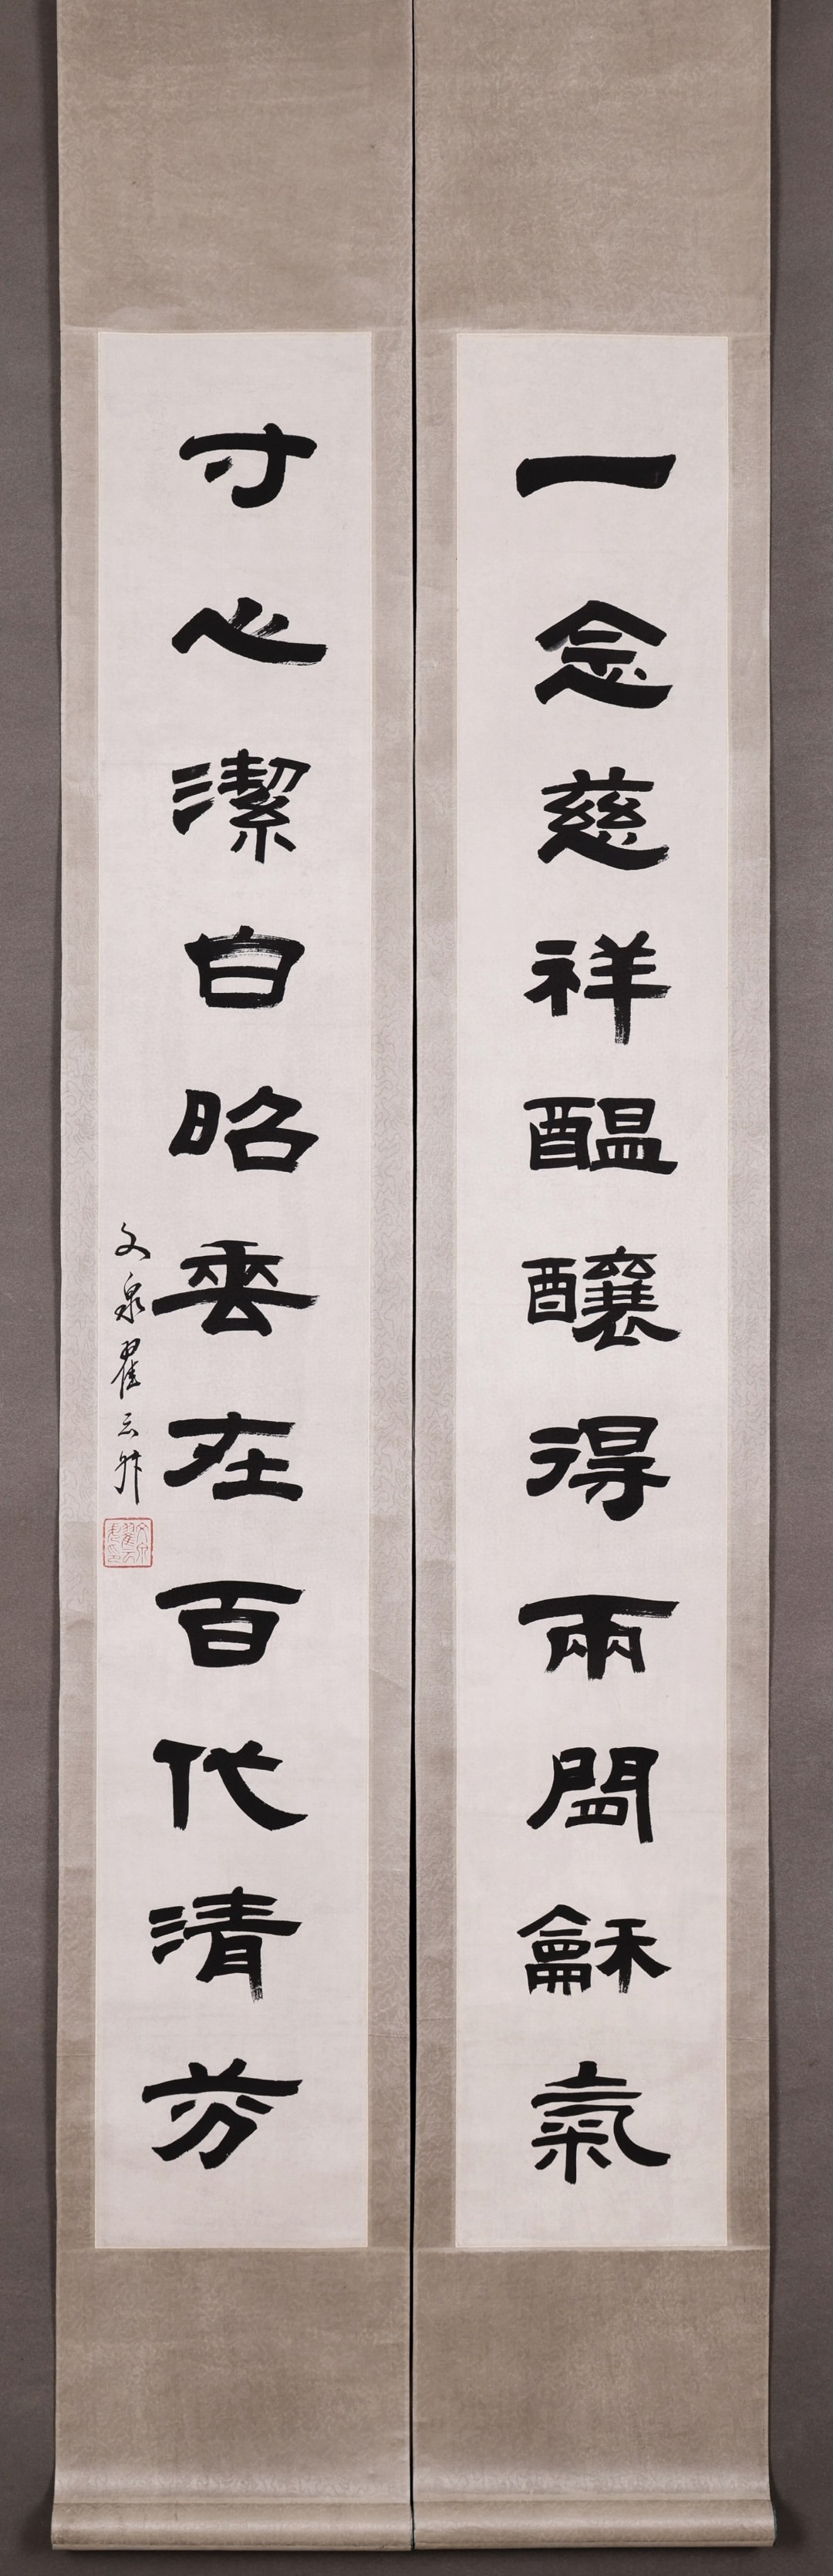 一念慈祥醖釀得兩間龢氣
寸心潔白昭垂在百代清芬
文泉翟云升